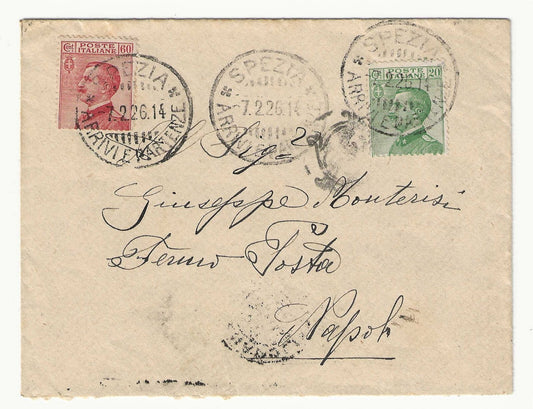 POSTE ITALIANE 60
SPEZIA
7.2.26.14
ARRIVI E PARTENZE
SPEZIA
7.2.26.14
ARRIVI E
SPEZIA
ARRIVI E
POSTE ITALIANE 20
Sig.ª
Giuseppe Monterisi
Fermo Posta
Napoli